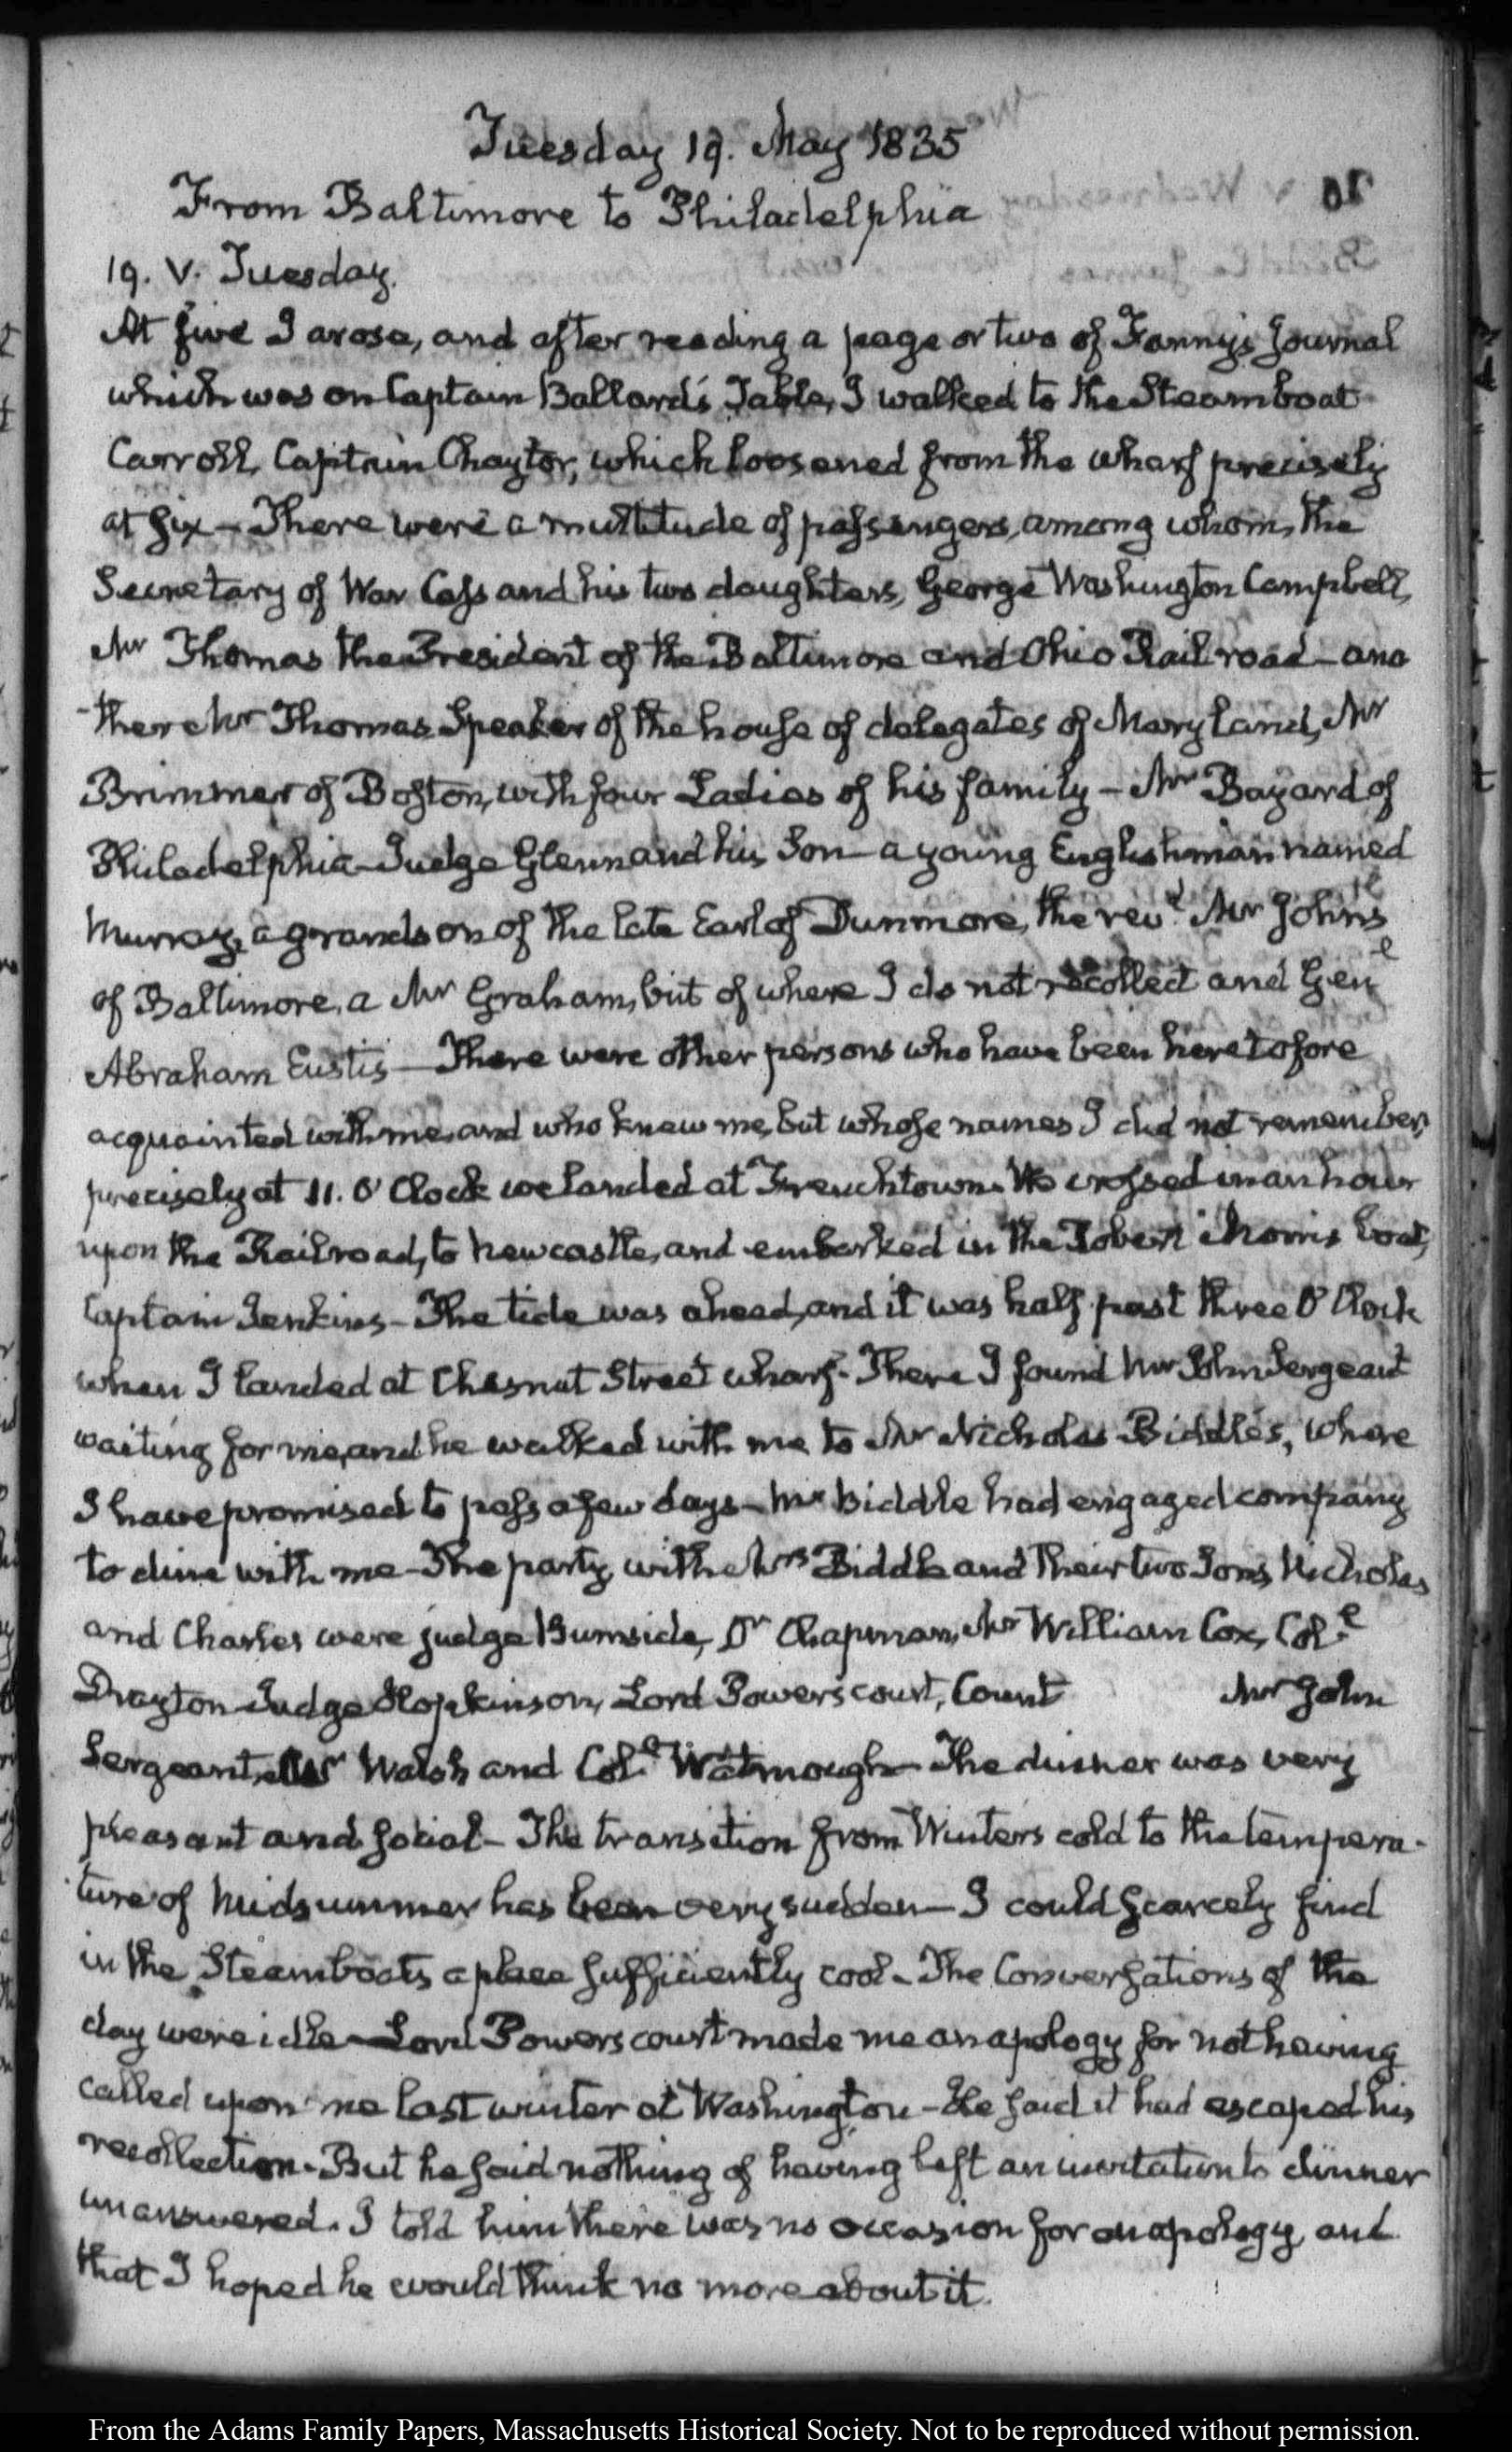 Tuesday 19. May 1835
From Baltimore to Philadelphia
19. V. Tuesday.
At five I arose, and after reading a page or two of Fanny's Journal
which was on Captain Ballard's Table, I walked to the Steamboat
Carroll, Captain Chaytor, which loosened from the wharf precisely
at six — There were a multitude of passengers, among whom, the
Secretary of War Cass and his two daughters, George Washington Campbell,
Mr Thomas the President of the Baltimore and Ohio Rail road — and
there Mr Thomas Speaker of the house of delegates of Maryland, Mr
Brimmer of Boston, with four Ladies of his family — Mr Bayard of
Philadelphia — Judge Glenn and his Son — a young Englishman named
Murray, a grandson of the late Earl of Dunmore, the revd Mr Johns
of Baltimore, a Mr Graham, but of where I do not recollect and Genl
Abraham Eustis — There were other persons who have been heretofore
acquainted with me, and who knew me, but whose names I did not remember,
precisely at 11. O'Clock we landed at Frenchtown. We crossed in an hour
upon the Railroad, to Newcastle, and embarked in the Robert Morris boat,
Captain Jenkins — The tide was ahead, and it was half past three O'Clock
when I landed at Chesnut Street wharf. There I found Mr John Sergeant
waiting for me, and he walked with me to Mr Nicholas Biddle's, where
I have promised to pass a few days — Mr Biddle had engaged company
to dine with me — The party, with Mrs Biddle and their two Sons, Nicholas
and Charles were judge Burnside, Dr Chapman, Mr William Cox, Coll
Drayton Judge Hopkinson, Lord Powerscourt, Count Mr John
Sergeant, Mr Walsh and Coll Watmough — The dinner was very
pleasant and social — The transition from Winters cold to the tempera-
ture of Midsummer has been very sudden — I could scarcely find
in the Steamboats a place sufficiently cool — The Conversations of the
day were idle — Lord Powerscourt made me an apology for not having
called upon me last winter at Washington — He said it had escaped his
recollection. But he said nothing of having left an invitation to dinner
unanswered. I told him there was no occasion for an apology, and
that I hoped he would think no more about it.
From the Adams Family Papers, Massachusetts Historical Society. Not to be reproduced without permission.